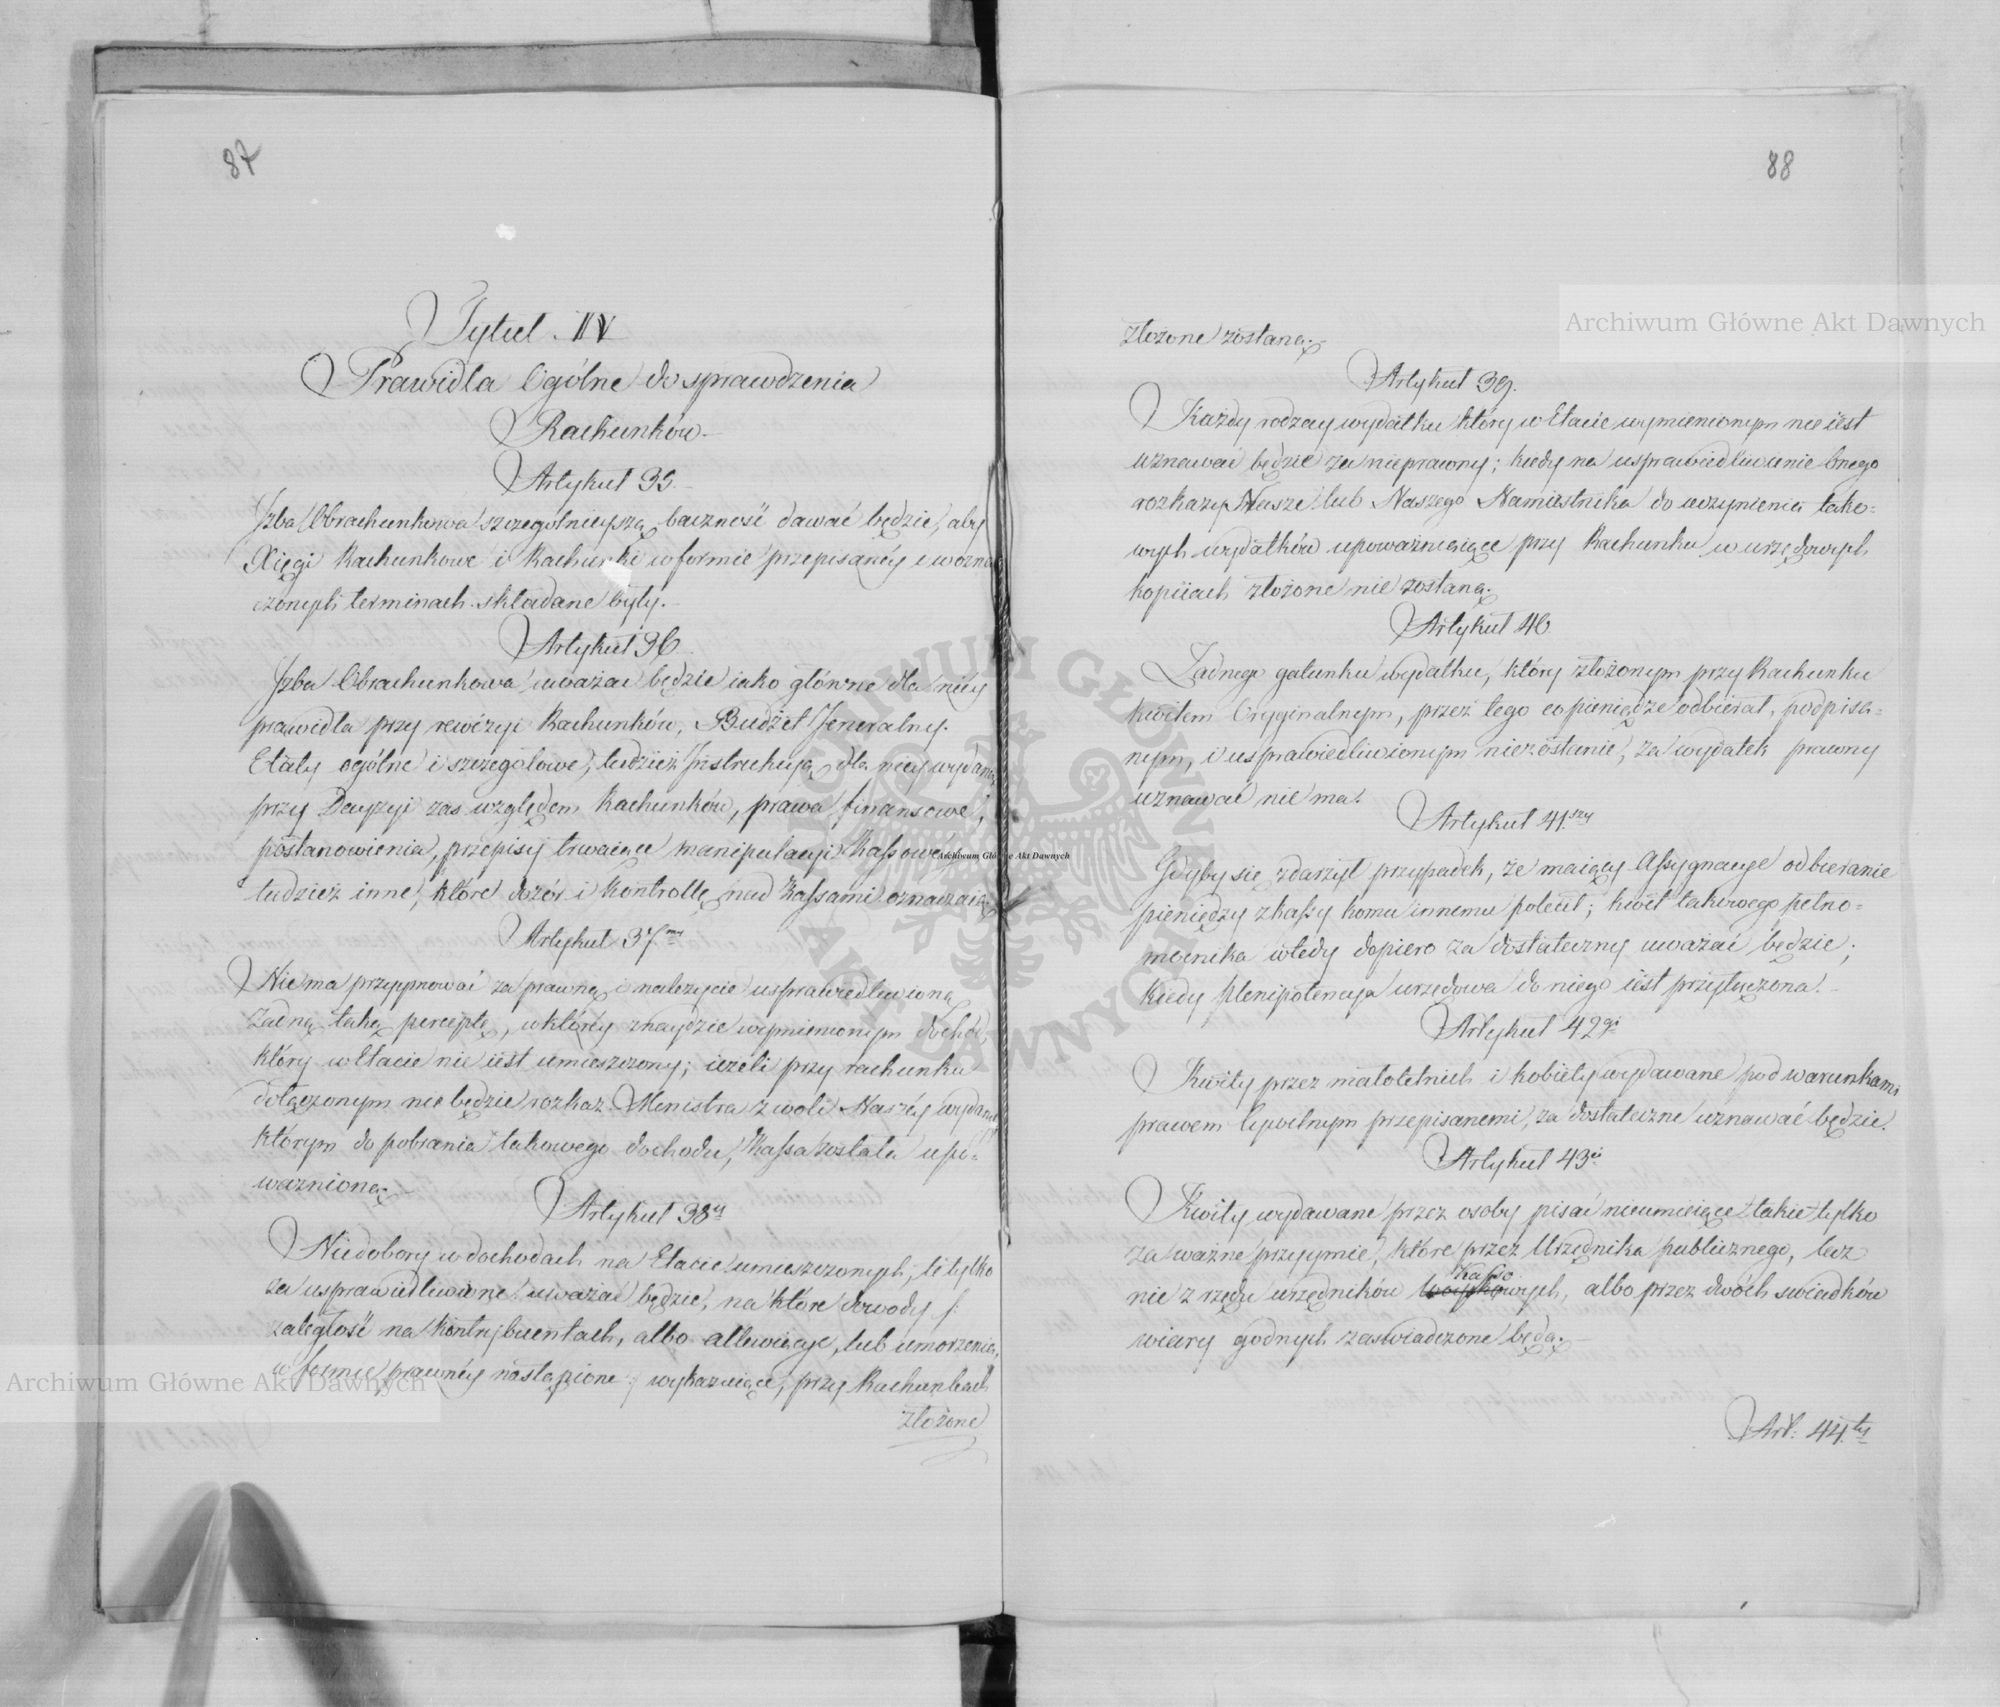 87
Tytuł IV
Prawidła Ogólne do sprawdzenia
Rachunków.
Artykuł 35.
Izba Obrachunkowa szczególnieyszą baczność dawać będzie, aby
Xięgi Rachunkowe i Rachunki w formie przepisanéy i w ozna-
czonych terminach składane były.
Artykuł 36
Izba Obrachunkowa uważać będzie iako główne dla niéy
prawidła przy rewizyi Rachunków, Budżet Jeneralny.
Etaty ogólne i szczegółowe, tudzież Instrukcyą dla niéy wydaną
przy Decyzyi zaś względem Rachunków, prawa finansowe,
postanowienia, przepisy trwaiące manipulacyi Kassowéy,
tudzież inne, które dozór i Kontrollę nad Kassami oznaczaią.
Artykuł 37my
Nie ma przyymować za prawną i należycie usprawiedliwioną
żadną taką perceptę, w któréy znaydzie wymienionym dochód,
który w Etacie nie iest umieszczony; ieżeli przy rachunku
dołączonym nie będzie rozkaz Ministra z woli Naszéy wydany
którym do pobrania takowego dochodu, Kassa została upo-
ważnioną.
Artykuł 38y
Niedobory w dochodach na Etacie umieszczonych, te tylko
za usprawiedliwione uważać będzie, na które dowody
zaległość na Kontrybuentach, albo allewiacye, lub umorzenia,
w formie prawnéy nastąpione wykazuiące, przy Rachunkach
złożone
88
złożone zostaną.
Artykuł 39.
Każdy rodzay wydatku który w Etacie wymienionym nie iest
uznawać będzie za nieprawny; kiedy na usprawiedliwienie Onego
rozkazy Nasze lub Naszego Namiestnika do uczynienia tako-
wych wydatków upoważniaiące przy Rachunku w urzędowych
kopiiach złożone nie zostaną.
Artykuł 40
Żadnego gatunku wydatku, który złożonym przy Rachunku
kwitem Oryginalnym, przez tego co pieniędze odbierał, podpisa-
nym, i usprawiedliwionym nie zostanie, za wydatek prawny
uznawać nie ma.
Artykuł 41szy
Gdyby się zdarzył przypadek, że maiący Assygnacye odbieranie
pieniędzy z kassy komu innemu polecił; kwit takowego pełno-
mocnika wtedy dopiero za dostateczny uważać będzie;
kiedy plenipotencya urzędowa do niego iest przyłączona.
Artykuł 42gi
Kwity przez małoletnich i kobiety wydawane pod warunkami
prawem Cywilnym przepisanemi, za dostateczne uznawać będzie.
Artykuł 43ci
Kwity wydawane przez osoby pisać nieumieiące takie tylko
za ważne przyymie, które przez Urzędnika publicznego, lecz
Kasso
nie z rzędu urzędników woyskowych, albo przez dwóch swiadków
wiary godnych zaswiadczone będą.
Art: 44.ty
Archiwum Główne Akt Dawnych
Archiwum Główne Akt Dawnych
Archiwum Główne Akt Dawnych
ARCHIWUM GŁÓWNE AKT DAWNYCH